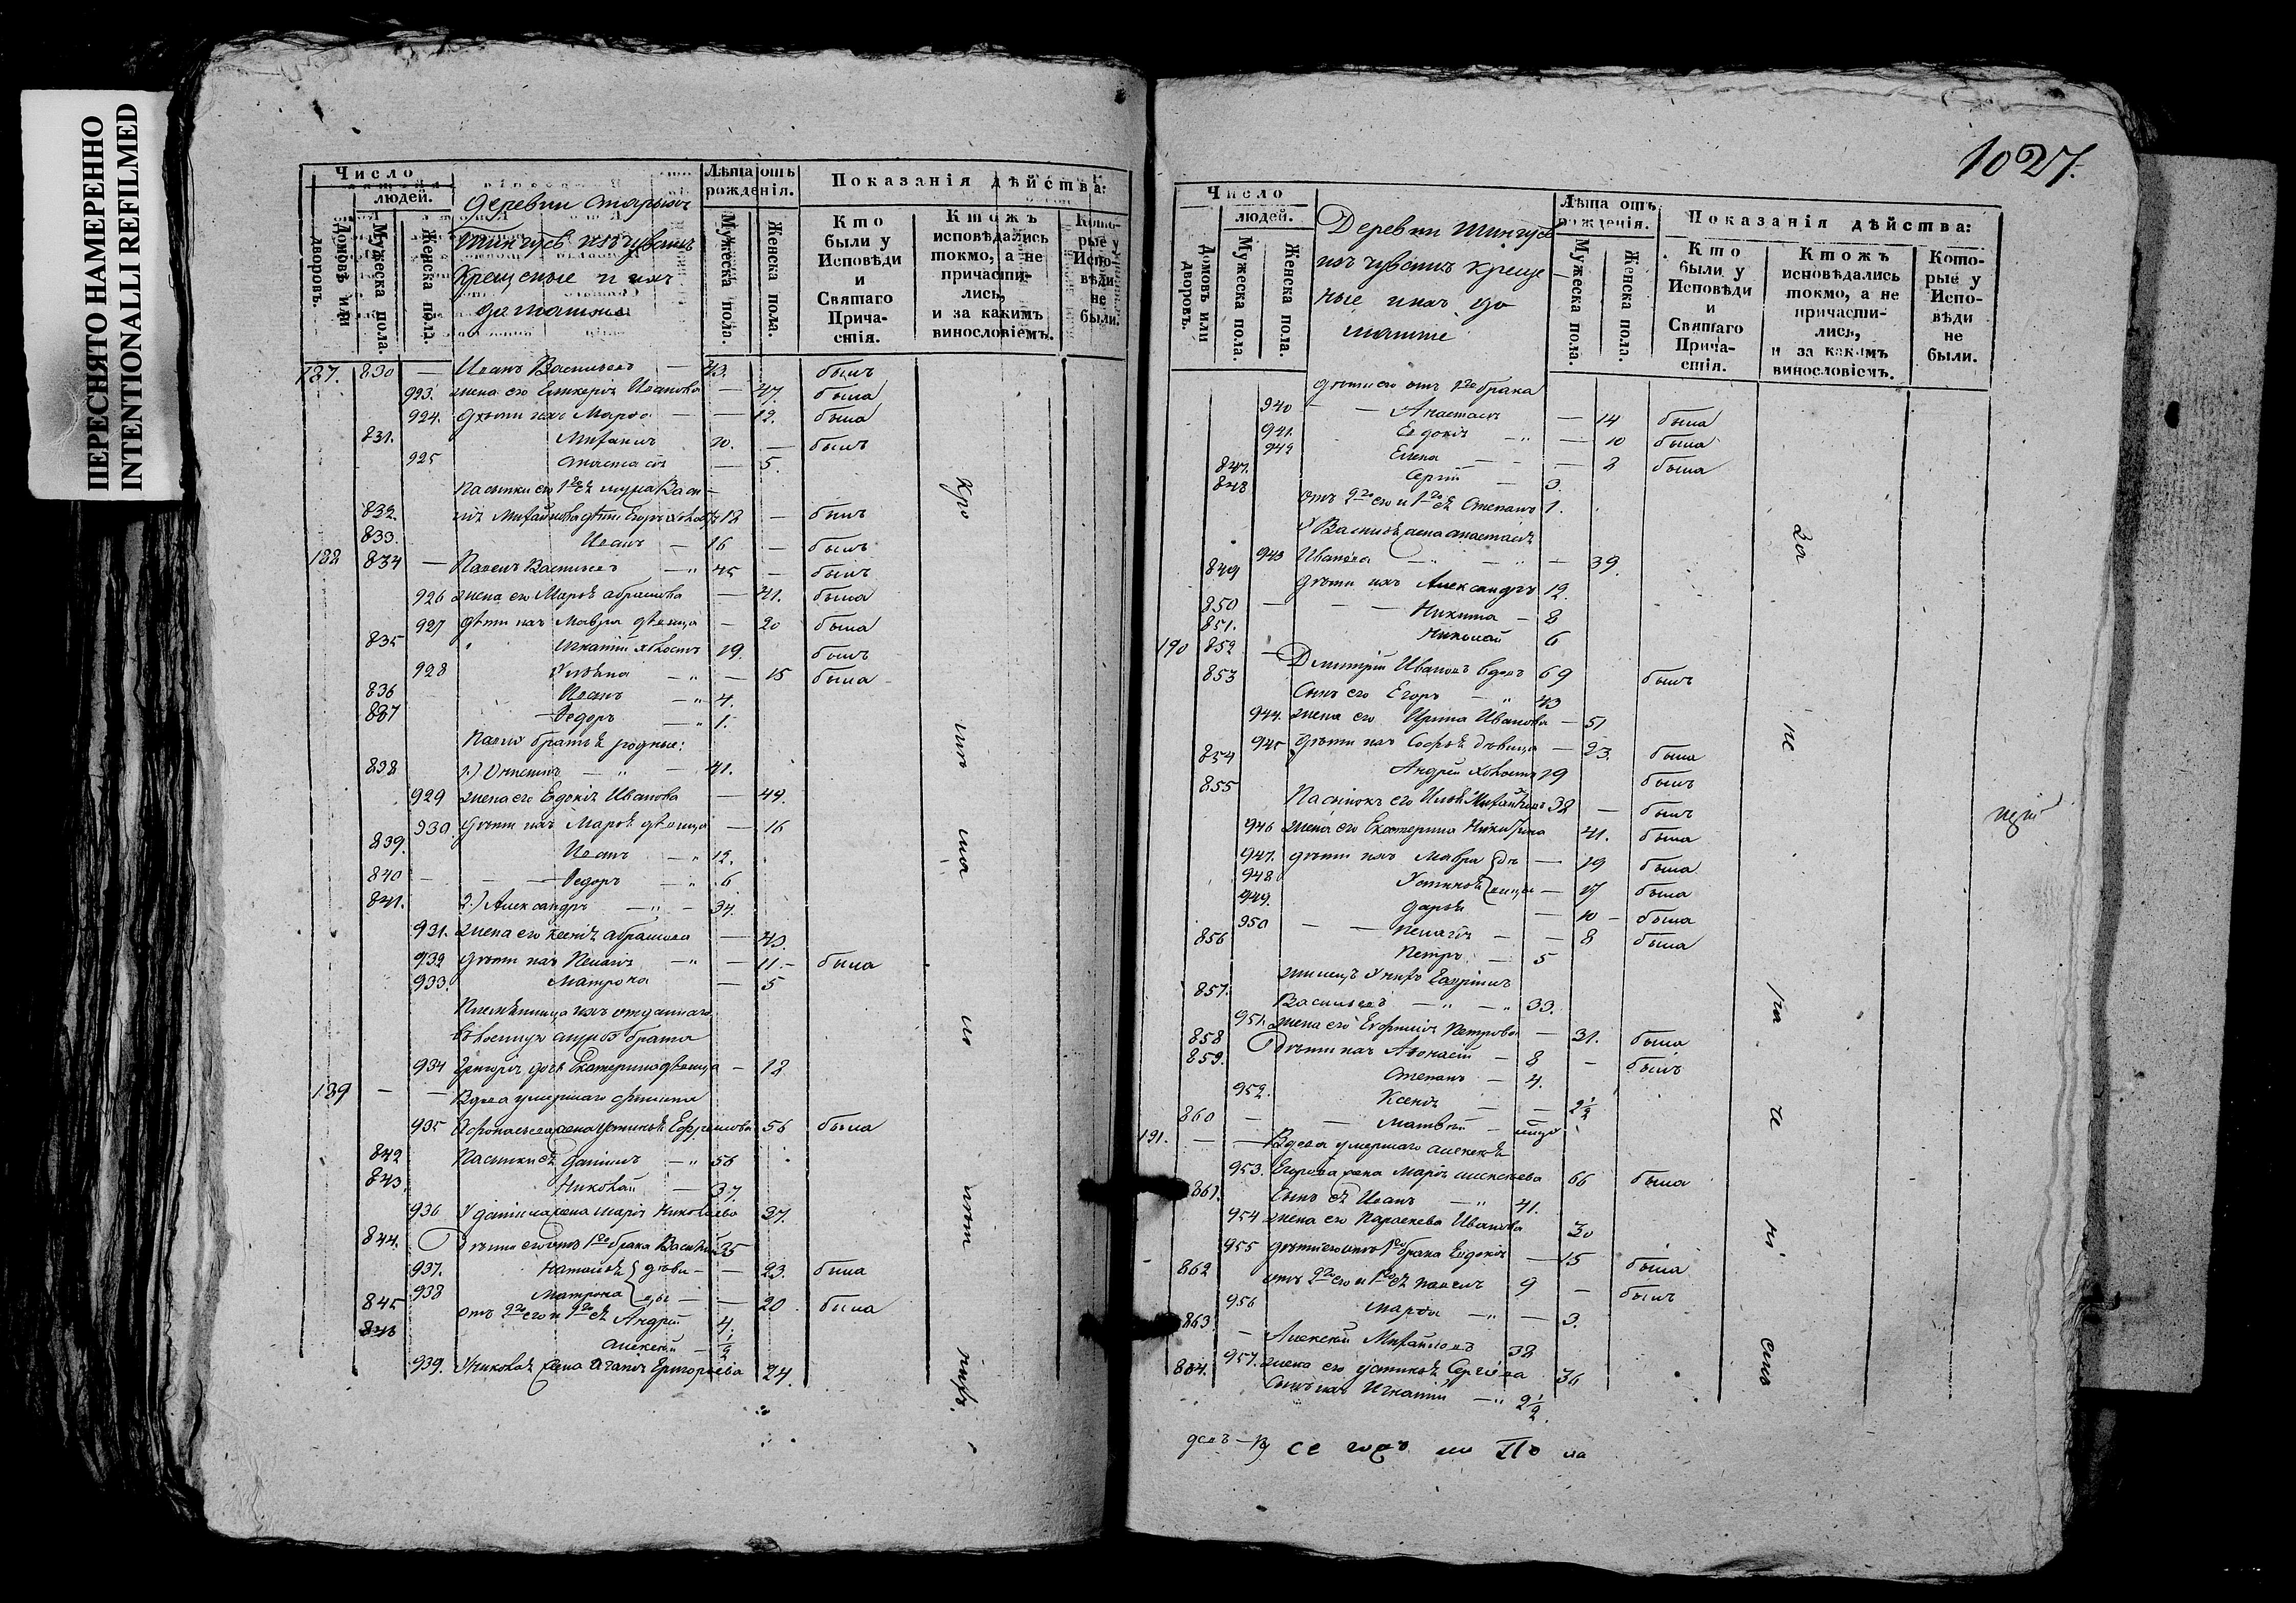 ПЕРЕСНЯТО НАМЕРЕННО
INTENTIONALLI REFILMED
Число
людей.
Домовъ или дворовъ.
Мужеска пола.
Женска пола.
деревни старыхъ
изъ чувашъ
Крещеные и ихъ
домашные
Лѣта отъ рожденія.
Мужеска пола.
Женска пола.
Показанія дѣйства:
Кто были у Исповѣди и Святаго Прича-стія.
Ктожъ исповѣдались токмо, а не причасти-лись, и за какимъ винословіемъ.
Кото-рые у Испо-вѣди не были.
187. 830 — Иванъ Васильевъ — 43. былъ
923. жена его Ивановна — 47. была
924. дѣти ихъ Марѳа — 12. была
831. Михаилъ 20. — былъ
925 Анастасія — 5.
832. 18 — былъ
833. Иванъ — 16 — былъ
188 834 — Павелъ Васильевъ — 45 — былъ
926 жена его Марѳа Абрамова — 41. была
927 дѣти ихъ Мавра дѣвица — 20 была
835 Игнатій холостъ 19. былъ
928 Ульяна — 15 была
836 Иванъ — 4.
837 Ѳедоръ — 1.
Павла братья родные:
838 1.) — 41.
929 жена его Евдокія Иванова — 44.
930. дѣти ихъ Марѳа дѣвица — 16
839. Иванъ — 12.
840 — Ѳедоръ — 6
841. 2.) Александръ — 34.
931. жена его Ксенія Абрамова — 43.
932 дѣти ихъ Пелагія — 11. — была
933. Матрона — 5
Племянница ихъ отданнаго
брата
934 Григорія дочь Екатерина дѣвица — 18
189 — — Вдова умершаго
935 жена Устинья Ефремова 56 была
842 Пасынки ея Даніилъ — 56
843. Николай — 37.
936 У Даніила жена Марія Николаева 37.
844. Дѣти его отъ 1го брака Василій 25
937. Наталья дѣви — — 23. была
938 Матрона цы — — 20 была
845 отъ 2го его и 1го ея Андрей 4.
846 Алексей — ½
939. У Николая жена Агапія Григорьева 24.
1027.
Число
людей.
Домовъ или дворовъ.
Мужеска пола.
Женска пола.
Деревни
изъ чувашъ креще
ные и ихъ до
машніе
Лѣта отъ рожденія.
Мужеска пола.
Женска пола.
Показанія дѣйства:
Кто были у Исповѣди и Святаго Прича-стія.
Ктожъ исповѣдались токмо, а не причасти-лись, и за какимъ винословіемъ.
Кото-рые у Испо-вѣди не были.
дѣти его отъ 1го брака
940 — — Анастасія — 14 была
941. Евдокія — 10 была
942 Елена — — 8 была
847. Сергій — 3.
848 отъ 2го его и 1го ея Степанъ 1.
У Василья жена Анастасія
943 Иванова — 39.
849 дѣти ихъ Александръ 12.
850 — Никита — 8
851. Николай 6
190 852 — Дмитрій Ивановъ вдовъ 69 былъ
853 Сынъ его Егоръ 43
944. жена его Ирина Иванова — 51
945 дѣти ихъ Софья дѣвица — 23. была
854 Андрей холостъ 19 былъ
855 Пасынокъ его Илья Михайловъ 38 — былъ
946 жена его Екатерина Никитина 41. была
947. дѣти ихъ Мавра дѣ — 19 была
948 Устинья вицы — 17 была
949. Дарья — 10 — была
950 — — Пелагія — — 8 была
856 Петръ — 5
857. Васильевъ — 33.
951. жена его Евфимія Петрова — 31. была
858 Дѣти ихъ Аѳонасій — 8 — былъ
859. Степанъ — 4.
952. Ксенія — — 2½
860 — — Матвѣй —
191. — — Вдова умершаго Алексея
953. Егорова жена Марія Алексѣева 66 была
861. Сынъ ея Иванъ — 41.
954 жена его Параскева Иванова 30
955 дѣти его отъ 1го брака Евдокія — 15 была
862 отъ 2го его и 1го ея Павелъ 9 — былъ
956 Марѳа — — 3.
863. — Алексей Михайловъ 38
957. жена его Устинья Сергіева 36
864. Сынъ ихъ Игнатій — 2½.